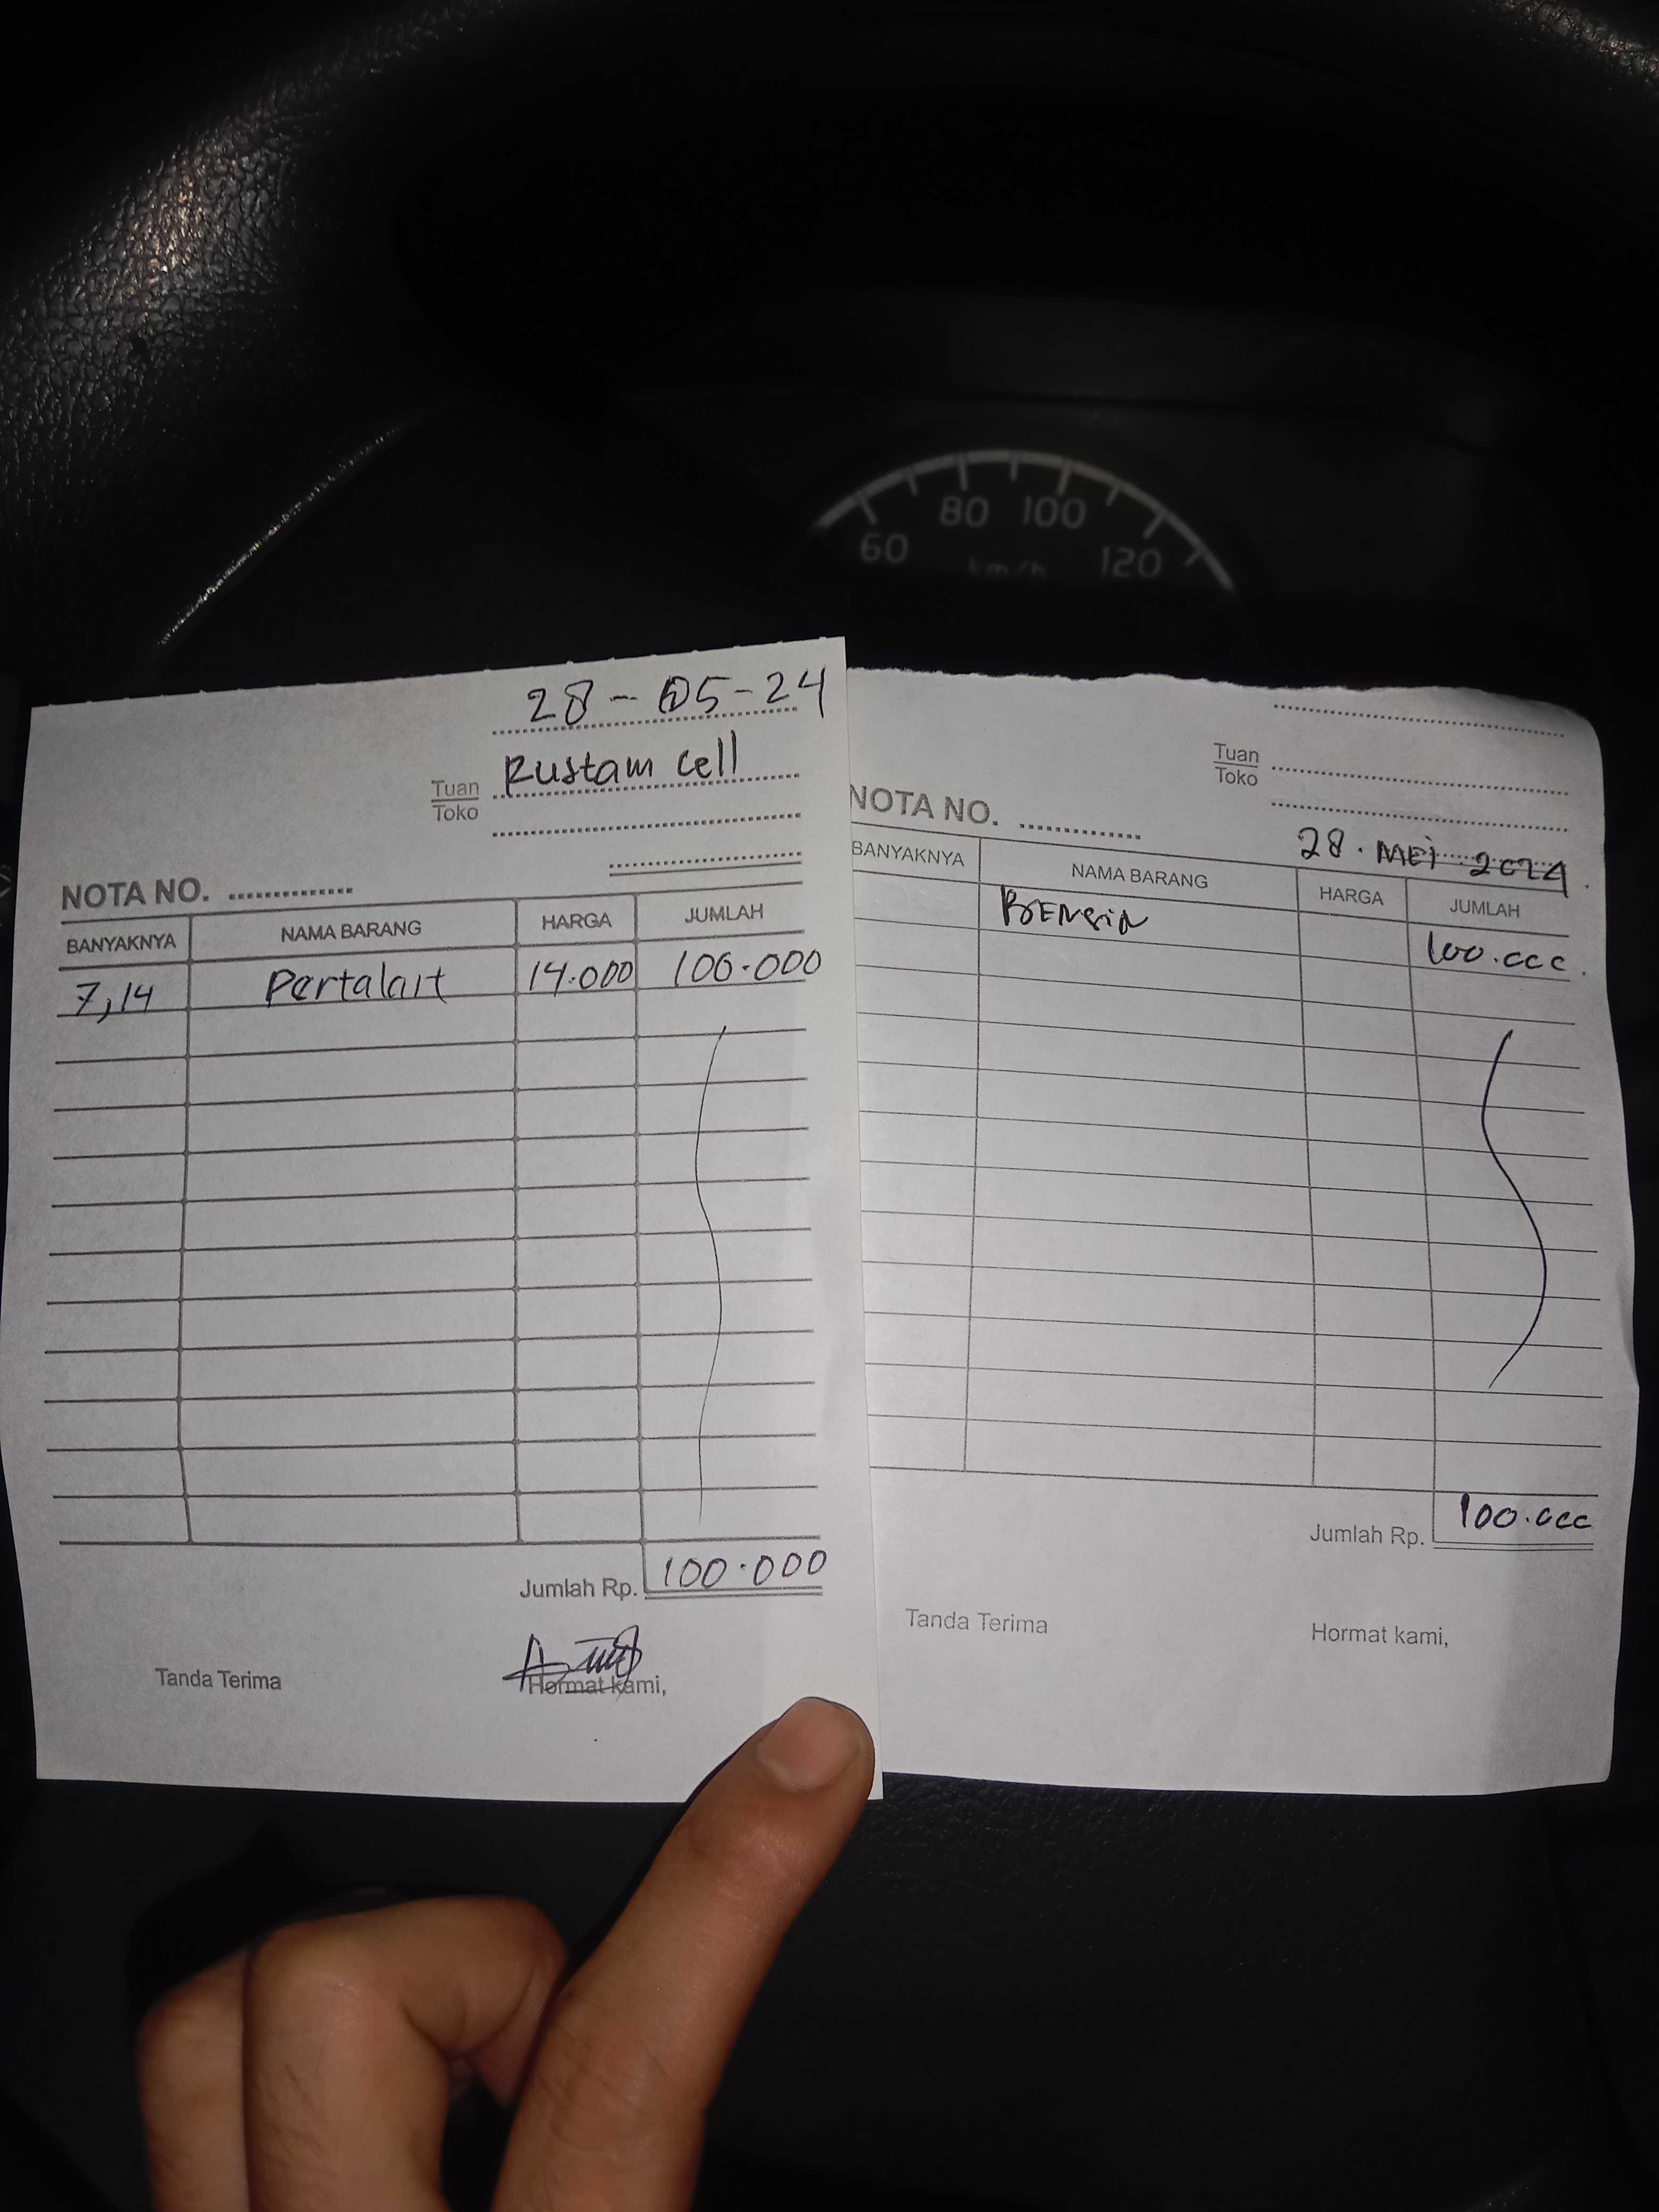 60 80 100 120
km/h
28-05-24
Tuan Rustam Cell
Toko
NOTA NO.
BANYAKNYA NAMA BARANG HARGA JUMLAH
7,14 Pertalait 14.000 100.000
Jumlah Rp. 100.000
Tanda Terima Hormat kami,
Tuan
Toko
NOTA NO.
28. MEI 2024.
BANYAKNYA NAMA BARANG HARGA JUMLAH
BENSIN 100.000.
Jumlah Rp. 100.000
Tanda Terima Hormat kami,